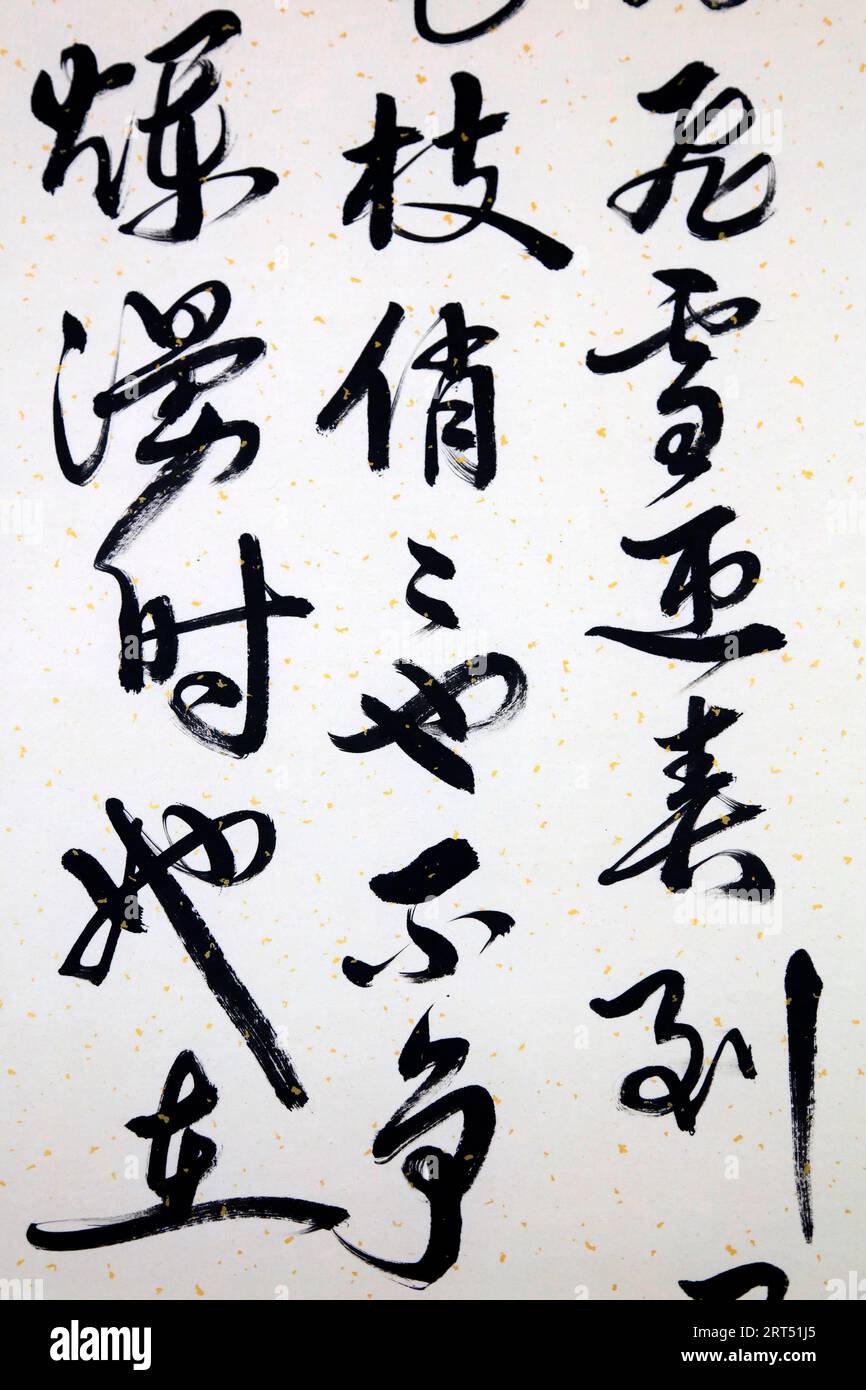 飛雪迎春到
枝俏〻也不争
爛漫时她在
alamy
Image ID: 2RT51J5
www.alamy.com